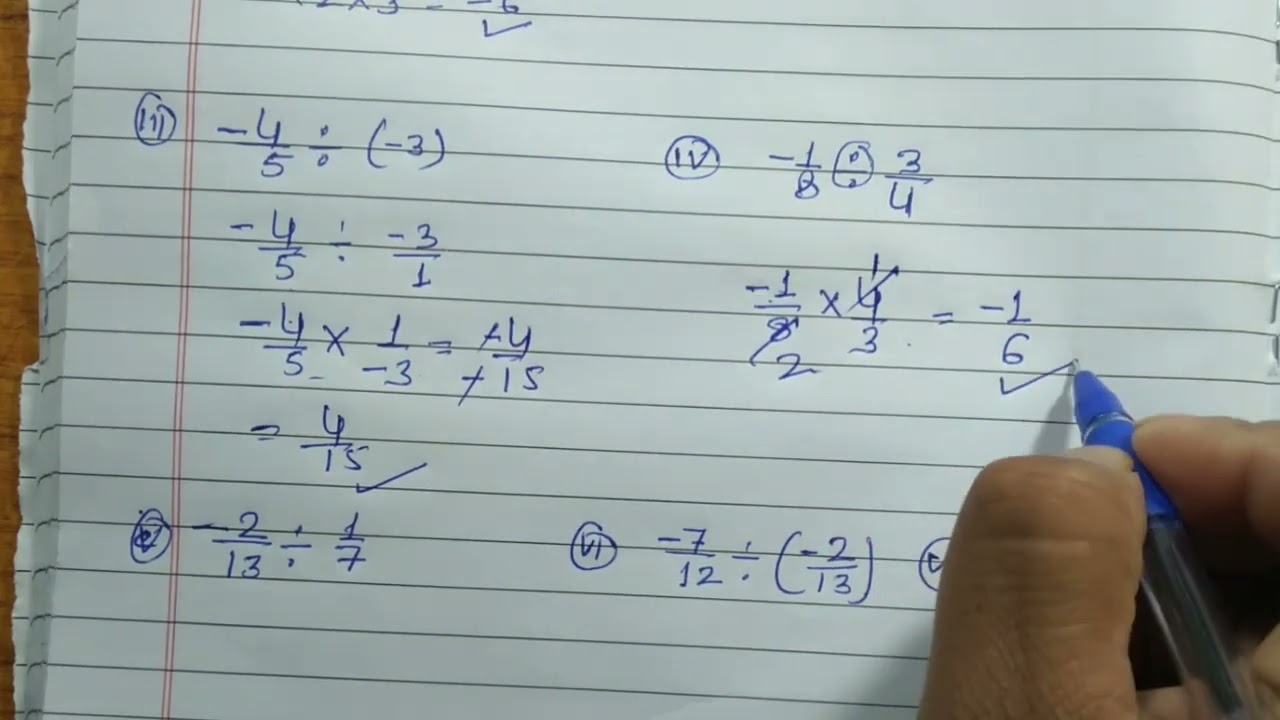 2 × 3 = -6 ✓
(iii) -4/5 ÷ (-3)
-4/5 ÷ -3/1
-4/5 × 1/-3 = -4/-15
= 4/15 ✓
(iv) -1/8 ÷ 3/4
-1/8 2 × 4 1/3 = -1/6 ✓
(v) -2/13 ÷ 1/7
(vi) -7/12 ÷ (-2/13)